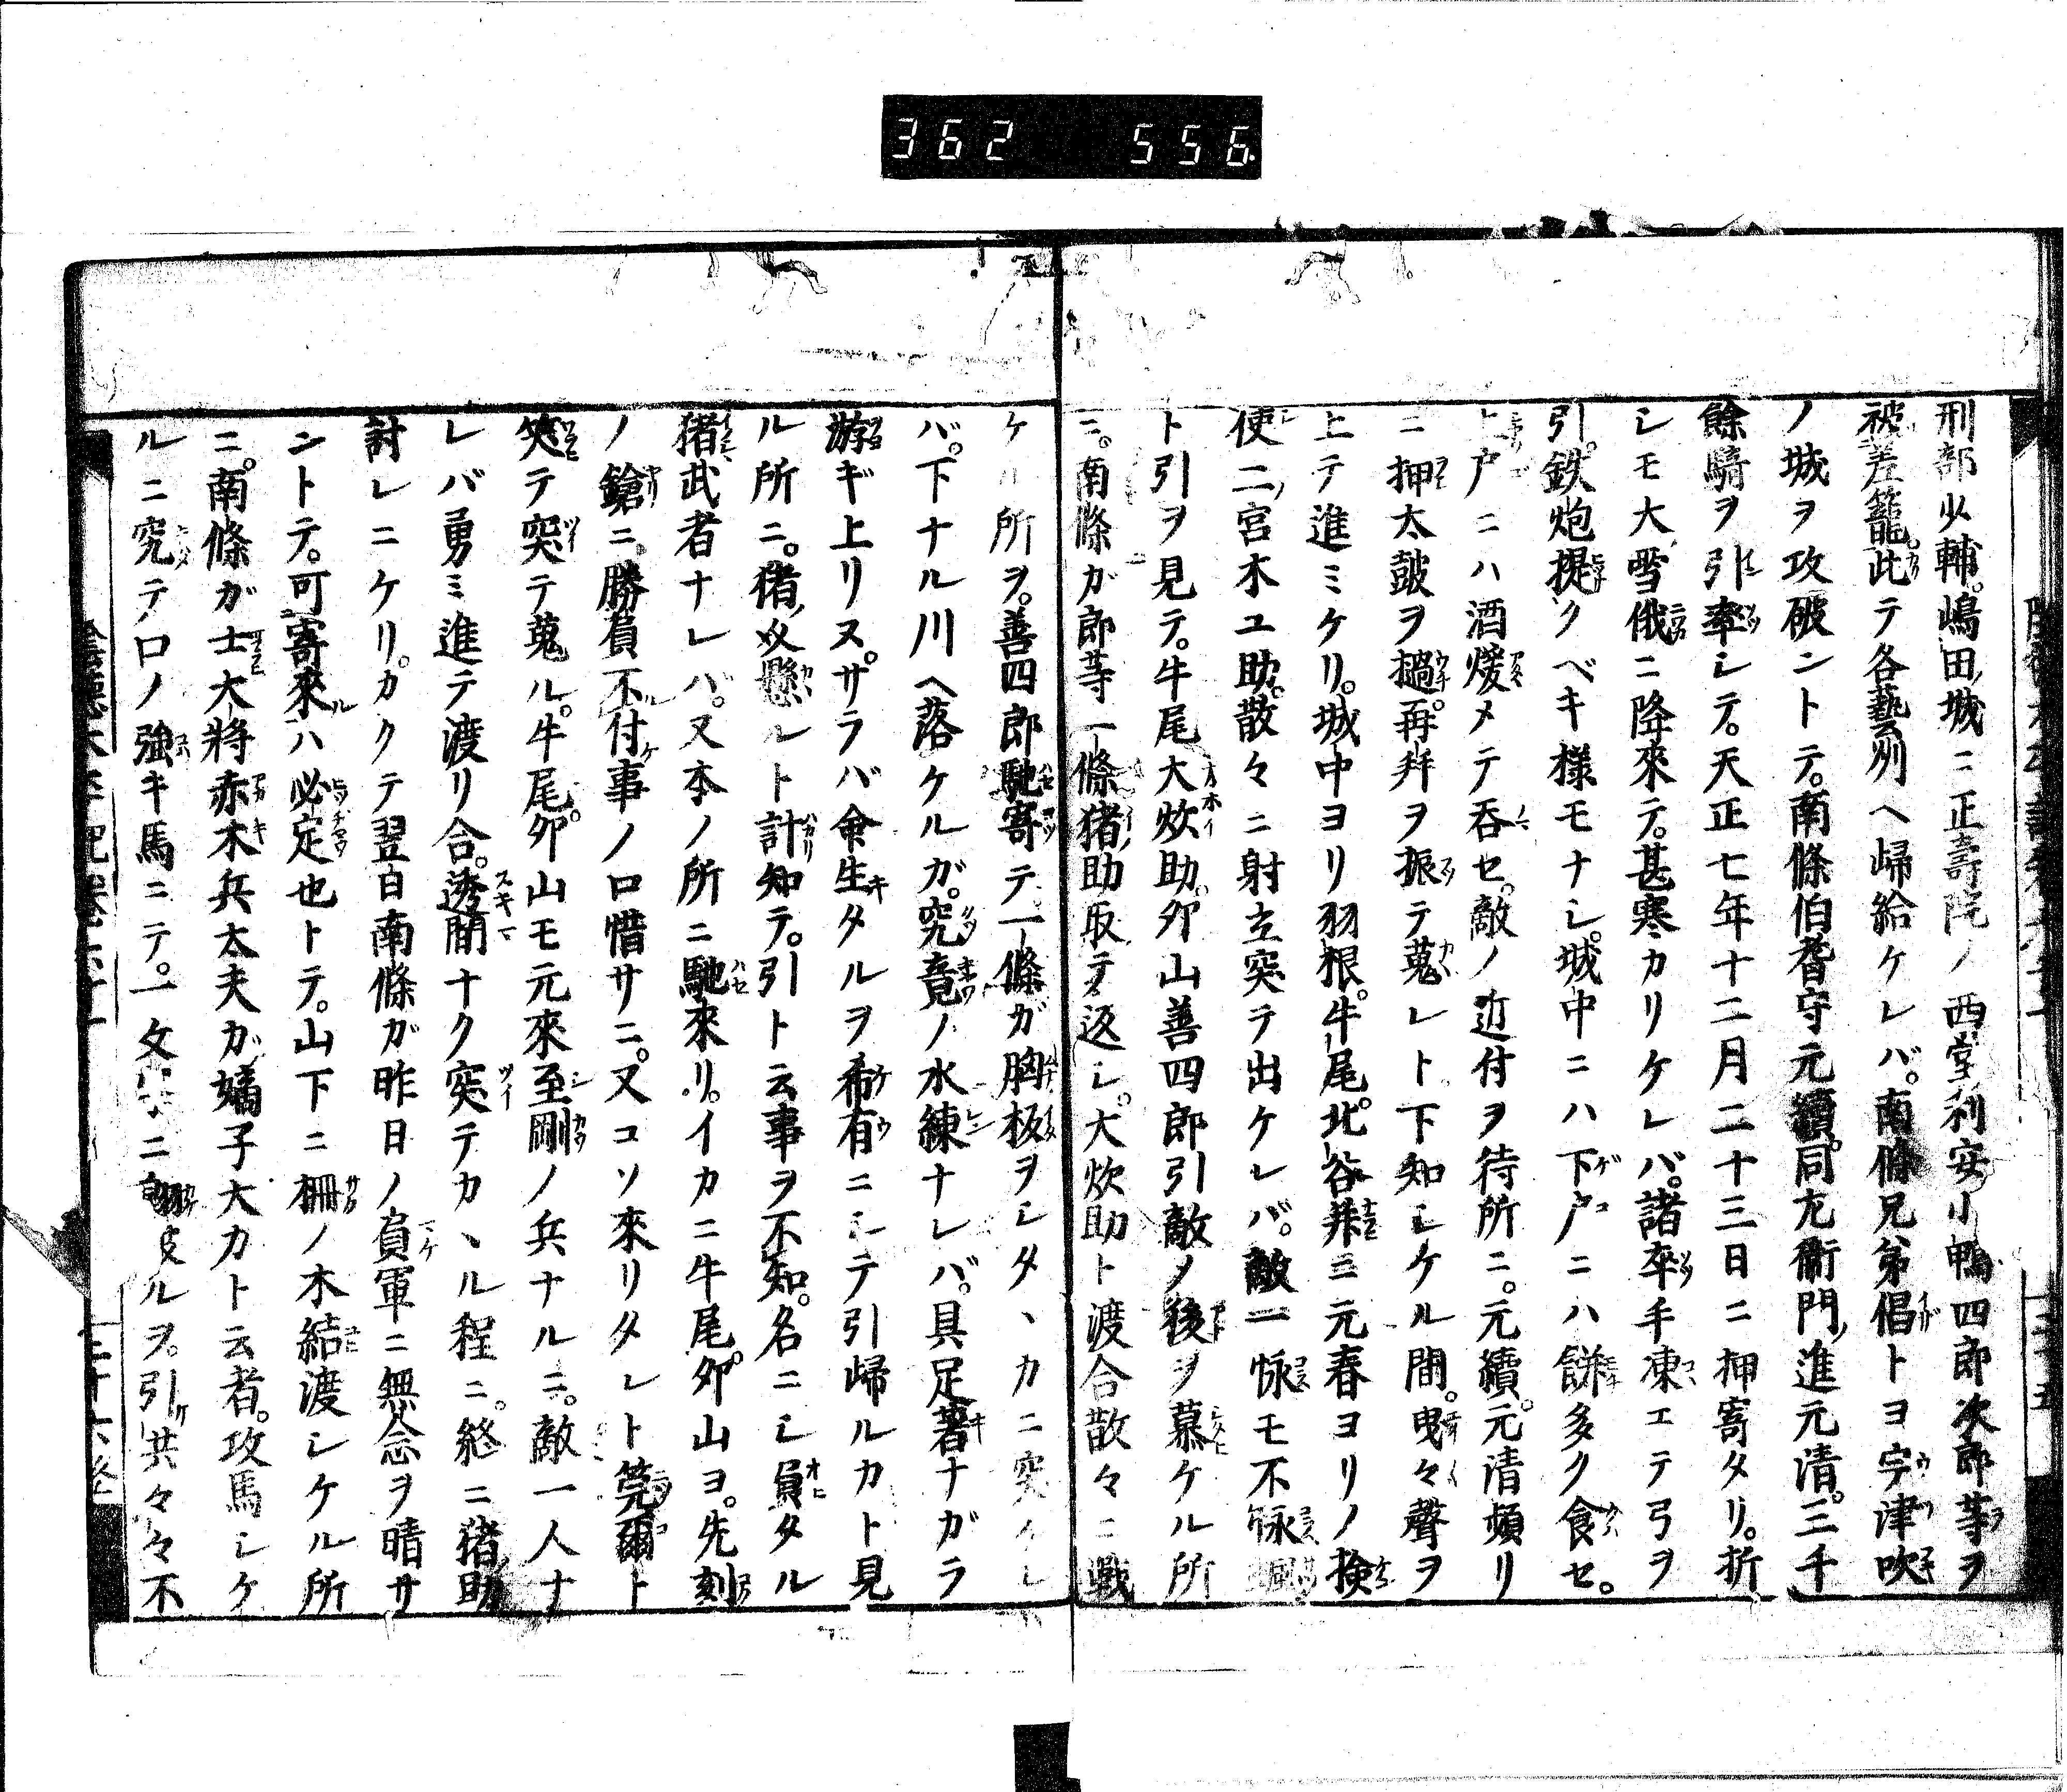 362 556
刑部少輔。嶋田城ニ正壽院ノ西堂利安小鴨四郎次郎等ヲ
被差籠。此テ各藝州ヘ歸給ケレバ。南條兄弟倡トヨ宇津吹
ノ城ヲ攻破ントテ。南條伯耆守元續。同左衞門進元清。三千
餘騎ヲ引率シテ。天正七年十二月二十三日ニ押寄タリ。折
シモ大雪俄ニ降來テ。甚寒カリケレバ。諸卒手凍エテ弓ヲ
引。鉄炮提クベキ樣モナシ。城中ニハ下戸ニハ餅多ク食セ。
上戸ニハ酒煖メテ呑セ。敵ノ近付ヲ待所ニ。元續。元清頻リ
ニ押太鼓ヲ撾。再拜ヲ振テ蒐レト下知シケル間。曳々聲ヲ
上テ進ミケリ。城中ヨリ羽根。牛尾。北谷并ニ元春ヨリノ檢
使二宮木工助。散々ニ射立突テ出ケレバ。敵一怺モ不怺
ト引ヲ見テ。牛尾大炊助。卯山善四郎引敵ノ後ヲ慕ケル所
ニ。南條ガ郎等一條猪助取テ返シ。大炊助ト渡合散々ニ戰
ケル所ヲ。善四郎馳寄テ一條ガ胸板ヲシタヽカニ突ケレ
バ。下ナル川ヘ落ケルガ。究竟ノ水練ナレバ。具足著ナガラ
游ギ上リヌ。サラバ命生タルヲ希有ニシテ引歸ルカト見
ル所ニ。猪ノ懸ルト計知テ。引ト云事ヲ不知。名ニシ負タル
猪武者ナレバ。又本ノ所ニ馳來リ。イカニ牛尾。卯山ヨ。先刻
ノ鎗ニ。勝負不付事ノ口惜サニ。又コソ來リタレト莞爾ト
笑テ突テ蒐ル。牛尾。卯山モ元來至剛ノ兵ナルニ。敵一人ナ
レバ勇ミ進テ渡リ合。透間ナク突テカヽル程ニ。終ニ猪助
討レニケリ。カクテ翌日南條ガ昨日ノ負軍ニ無念ヲ晴サ
ントテ。可寄來ハ必定也トテ。山下ニ柵ノ木結渡シケル所
ニ。南條ガ士大將赤木兵太夫ガ嫡子大力ト云者。攻馬シケ
ルニ究テ口ノ強キ馬ニテ。一文字ニ翔破ルヲ。引共々々不